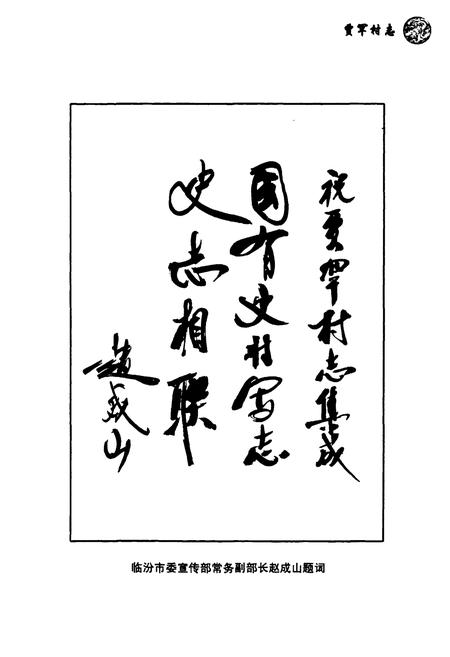 贾罕村志
祝贾罕村志集成
国有史村写志
史志相联
赵成山
临汾市委宣传部常务副部长赵成山题词